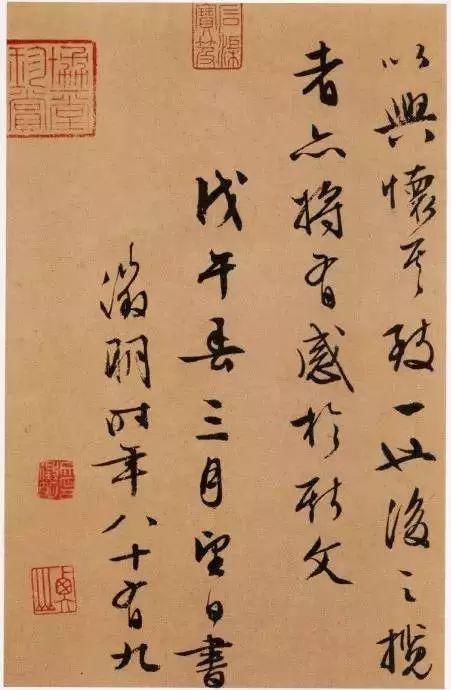 以興懷其致一也後之攬
者亦將有感於斯文
石渠寶笈
戊午春三月望日書
徵明時年八十有九